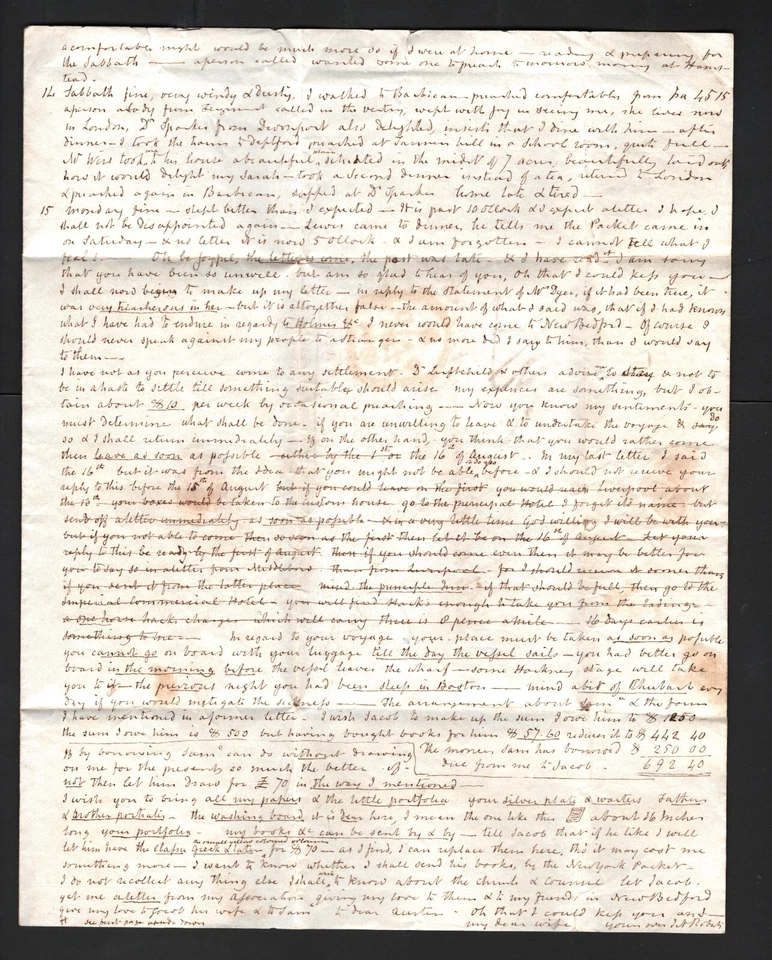 a comfortable night would be much more so if I were at home — reading & preparing for
the Sabbath — a person called wanted some one to preach to morrow morning at Hams-
tead. —
14 Sabbath fine, very windy & Dusty. I walked to Barbican — preached comfortable from 45 15
a person a lady from called in the vestry, wept with joy in seeing me, she lives now
in London, Dr Sparkes from Devonport also delighted, insists that I dine with him — after
dinner — I took the to Deptford preached at Tanners hill in a School room, quite full —
Mr Wire took to his house a beautiful place situated in the midst of 7 acres, beautifully laid out
how it would delight my Sarah — took a second dinner instead of a tea, returned to London
& preached again in Barbican, supped at Dr Sparkes home late & tired —
15 Monday fine — slept better than I expected — It is past 10 o'lock & I expect a letter I hope I
shall not be Disappointed again — Lewis came to dinner, he tells me the Packet came in
on Saturday — & no letter it is now 5 o'lock & I am forgotten — I cannot tell what I
feel! — Oh be joyful, the letter is come, the post was late — & I have read it I am sorry
that you have been so unwell. but am so glad to hear of you, Oh that I could kiss you —
I shall now begin to make up my letter — in reply to the Statement of Mr Dyer, if it had been true, it
was very treacherous in her — but it is altogether false — the amount of what I said was, that if I had known
what I have had to endure in regard to Holmes &c I never would have come to New Bedford — Of course I
should never speak against my people to a stranger — & no more did I say to him, than I would say
to them —
I have not as you perceive come to any settlement. Dr & others advise to stay & not to
be in a haste to settle till something suitable should arise my expences are something, but I ob-
tain about $10 per week by occasional preaching — Now you know my sentiments — you
must determine what shall be done — if you are unwilling to leave & to undertake the voyage Do say
so & I shall return immediately — If on the other hand, you think that you would rather come
then leave as soon as possible — either by the 1st or the 16th of August — In my last letter I said
the 16th but it was from the idea that you might not be able to do so before — & I should not receive your
reply to this before the 15th of August but if you could leave on the first you would reach Liverpool about
the 13th your boxes would be taken to the custom house, go to the principal Hotel I forget its name but
send off a letter immediately as soon as possible & in a very little time God willing I will be with you
but if you not able to come then so soon as the first then let it be on the 16th of August — Let your
reply to this be ready by the first of August then if you should come even then it may be better for
you to say so in a letter from than from Liverpool — for I should receive it sooner than
if you sent it from the latter place mind the principle Inn — if that should be full, then go to the
Imperial Commercial Hotel — you will find Hacks enough to take you from the Landings —
a one horse hack charges which will carry there is 8 pence a mile — 16 Days earlier is
something to me — In regard to your voyage — your place must be taken as soon as possible
you cannot go on board with your luggage till the day the vessel sails — you had better go on
board in the morning before the vessel leaves the wharf — some Hackney stage will take
you to it — the previous night you had been sleep in Boston — mind a bit of Rhubarb every
day if you would mitigate the sickness — The arrangement about & the form
I have mentioned in a former letter — I wish Jacob to make up the sum I owe him to $ 1250
the sum I owe him is $ 500 but having bought books for him $ 57.60 reduces it to $ 442 40
If by borrowing Saml can do without drawing The monies Sam has borrowed $ 250 00
on me for the present so much the better if Due from me to Jacob. 692 40
not then let him draw for £ 70 in the way I mentioned —
I wish you to bring all my papers & the little portfolia your silver plate & waiters Fathers
& Mother portraits — the washing board, it is dear here, I mean the one like this about 16 Inches
long your portfolio — my books &c can be sent by & by — tell Jacob that if he like I will
let him have the classic Greek & Latin the small yellow covered volumes for $ 70 — as I find, I can replace them here, tho it may cost me
something more — I want to know whether I shall send his books, by the New York Packet —
I do not recollect any thing else I shall want to know about the church & Council let Jacob
get me a letter from my Association giving my love to them & to my friends in New Bedford
give my love to Jacob his wife & to Saml to dear Austin. Oh that I could kiss you and —
see first page upside down my dear wife, your own